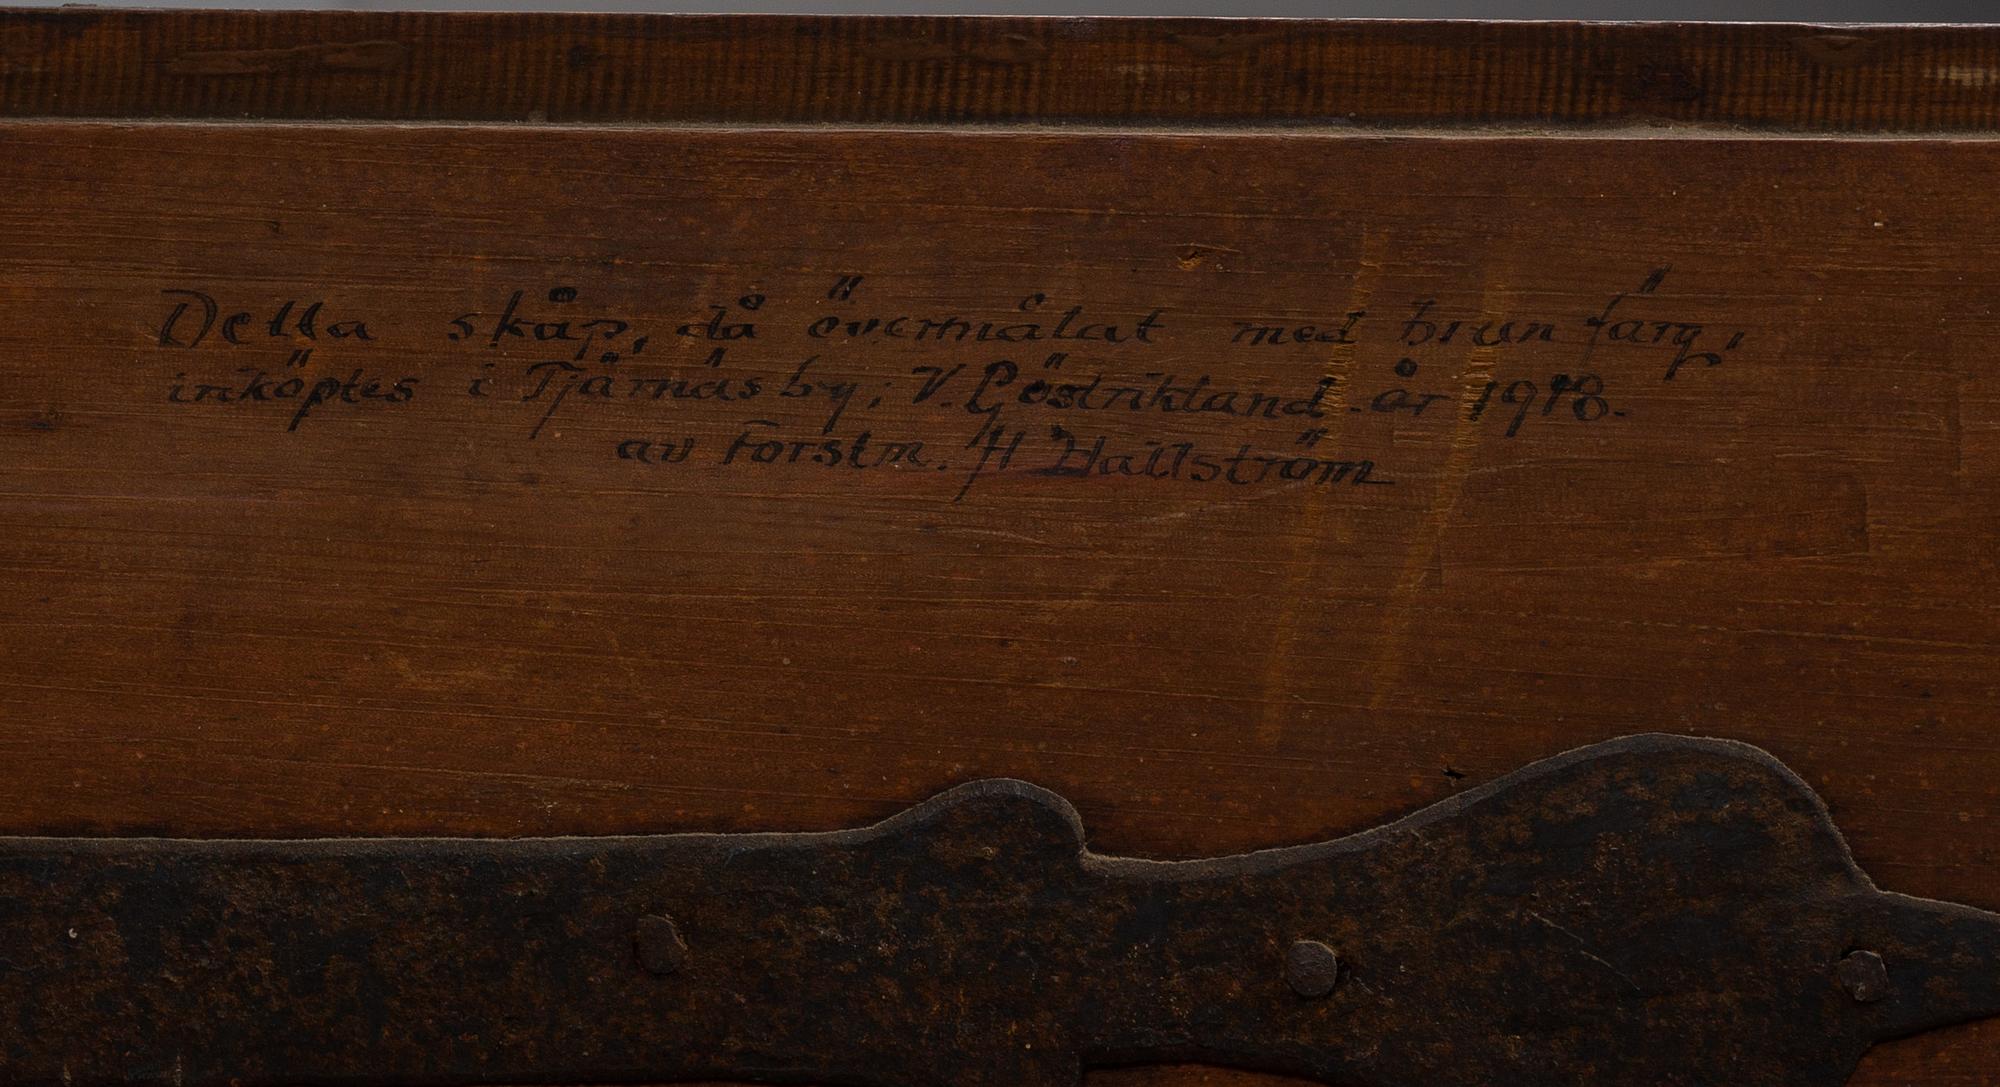 Detta skåp, då övermålat med brun färg,
inköptes i Tjärnäs by; V. Gästrikland. år 1918.
av Forstm. H Hallström